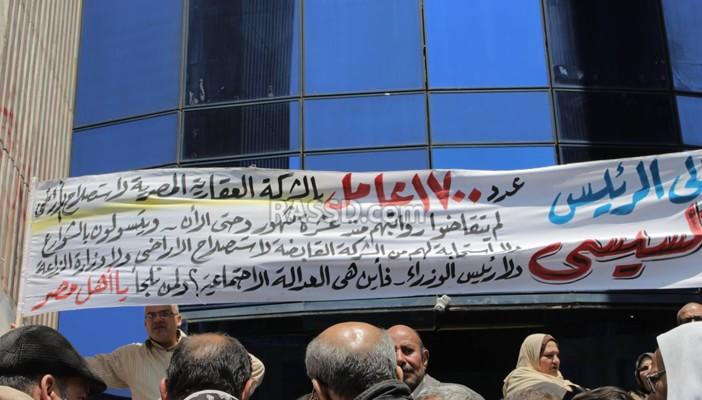 إلى الرئيس
السيسى
عدد ١٧٠٠ عامل بالشركة العقارية المصرية لاستصلاح الأراضى
لم يتقاضوا رواتبهم منذ عشرة شهور وحتى الآن - ويتسولون بالشوارع
ولا استجابة لهم من الشركة القابضة لاستصلاح الاراضى ولا وزارة الزراعة
ولا رئيس الوزراء - فأين هى العدالة الاجتماعية؟ ولمن نلجأ يا أهل مصر
RASSD.com